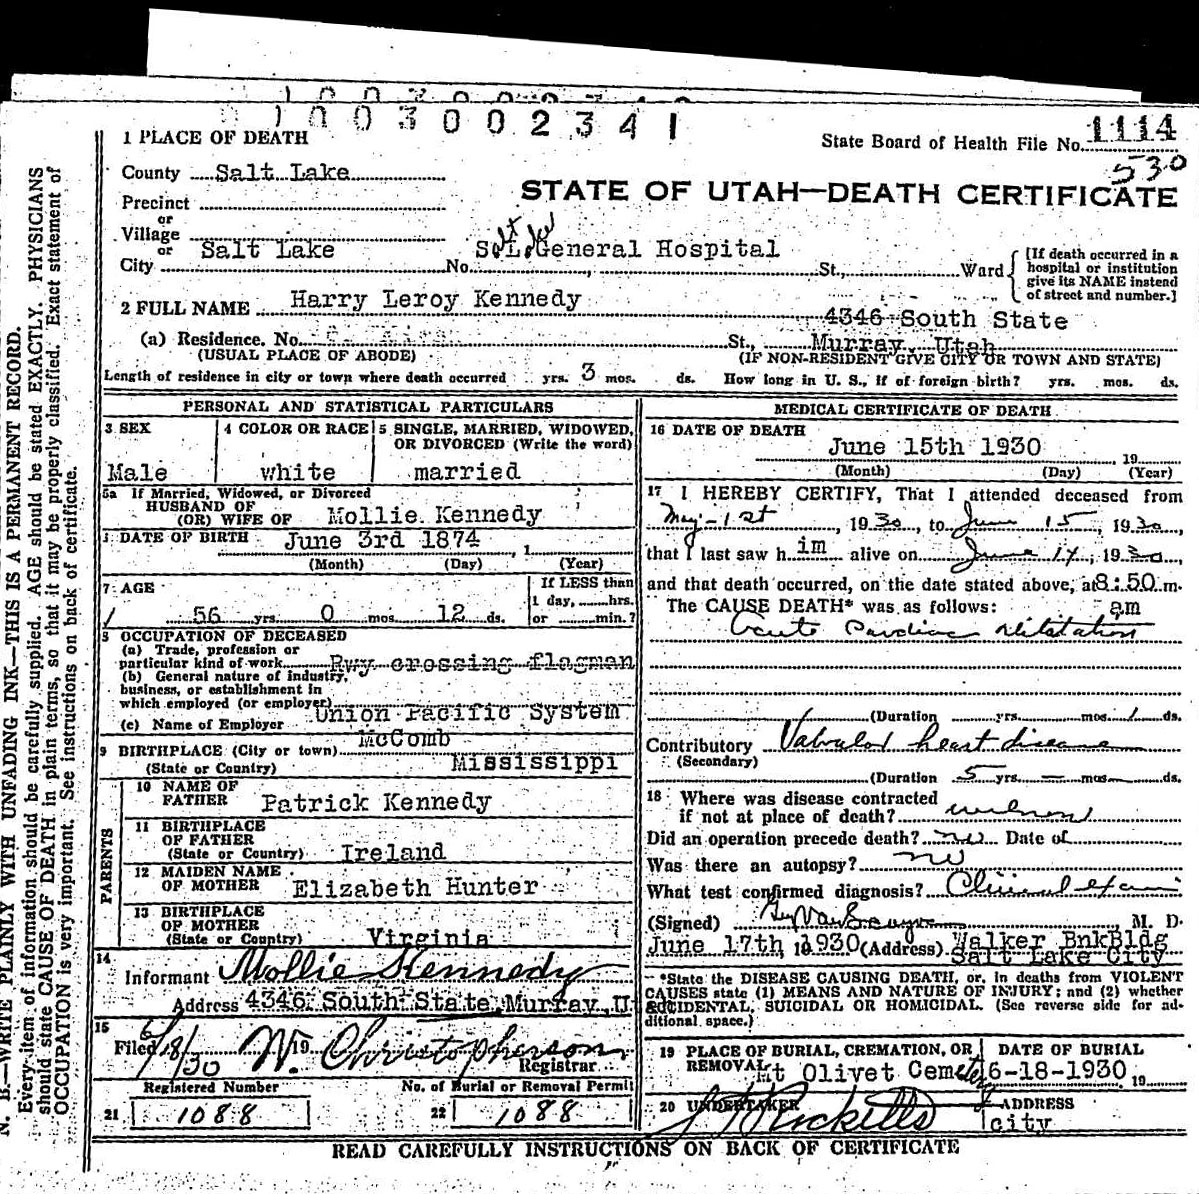 1003002341
1 PLACE OF DEATH
State Board of Health File No. 1114
530
County Salt Lake
STATE OF UTAH—DEATH CERTIFICATE
Precinct
or
Village
or
City Salt Lake No. S.L. General Hospital St., Ward
Salt Lake
[If death occurred in a
hospital or institution
give its NAME instead
of street and number.]
2 FULL NAME Harry Leroy Kennedy
4346 South State
(a) Residence. No. St., Murray, Utah
(USUAL PLACE OF ABODE) (IF NON-RESIDENT GIVE CITY OR TOWN AND STATE)
Length of residence in city or town where death occurred yrs. 3 mos. ds. How long in U. S., if of foreign birth? yrs. mos. ds.
PERSONAL AND STATISTICAL PARTICULARS
3 SEX
Male
4 COLOR OR RACE
white
5 SINGLE, MARRIED, WIDOWED,
OR DIVORCED (Write the word)
married
5a If Married, Widowed, or Divorced
HUSBAND OF
(OR) WIFE OF Mollie Kennedy
DATE OF BIRTH June 3rd 1874, 1
(Month) (Day) (Year)
7 AGE
56 yrs. 0 mos. 12 ds.
If LESS than
1 day, hrs.
or min.?
8 OCCUPATION OF DECEASED
(a) Trade, profession or
particular kind of work Rwy crossing flagman
(b) General nature of industry,
business, or establishment in
which employed (or employer)
Union Pacific System
(c) Name of Employer
9 BIRTHPLACE (City or town) McComb
(State or Country) Mississippi
PARENTS
10 NAME OF
FATHER Patrick Kennedy
11 BIRTHPLACE
OF FATHER
(State or Country) Ireland
12 MAIDEN NAME
OF MOTHER Elizabeth Hunter
13 BIRTHPLACE
OF MOTHER
(State or Country) Virginia
14
Informant Mollie Kennedy
Address 4346 South State, Murray, U
15
Filed 6/18/30 19 W. Christopherson
Registrar
Registered Number No. of Burial or Removal Permit
21 1088 22 1088
MEDICAL CERTIFICATE OF DEATH
16 DATE OF DEATH
June 15th 1930, 19
(Month) (Day) (Year)
17 I HEREBY CERTIFY, That I attended deceased from
May-1st, 1930, to June 15, 1930,
that I last saw him alive on June 14, 1930,
and that death occurred, on the date stated above, at 8:50 m.
am
The CAUSE DEATH* was as follows:
Acute Cardiac dilatation
(Duration yrs. mos. 1 ds.
Contributory Valvular heart disease
(Secondary)
(Duration 5 yrs. — mos. — ds.
18 Where was disease contracted
if not at place of death? unknown
Did an operation precede death? no Date of
Was there an autopsy? no
What test confirmed diagnosis? Clinical exam
(Signed) M. D.
June 17th, 1930 (Address) Walker BnkBldg
Salt Lake City
*State the DISEASE CAUSING DEATH, or, in deaths from VIOLENT
CAUSES state (1) MEANS AND NATURE OF INJURY; and (2) whether
ACCIDENTAL, SUICIDAL OR HOMICIDAL. (See reverse side for ad-
ditional space.)
19 PLACE OF BURIAL, CREMATION, OR
REMOVAL Mt Olivet Cemetery
DATE OF BURIAL
6-18-1930, 19
20 UNDERTAKER
ADDRESS
city
READ CAREFULLY INSTRUCTIONS ON BACK OF CERTIFICATE
N. B.—WRITE PLAINLY WITH UNFADING INK—THIS IS A PERMANENT RECORD.
Every item of information should be carefully supplied. AGE should be stated EXACTLY. PHYSICIANS
should state CAUSE OF DEATH in plain terms, so that it may be properly classified. Exact statement of
OCCUPATION is very important. See instructions on back of certificate.